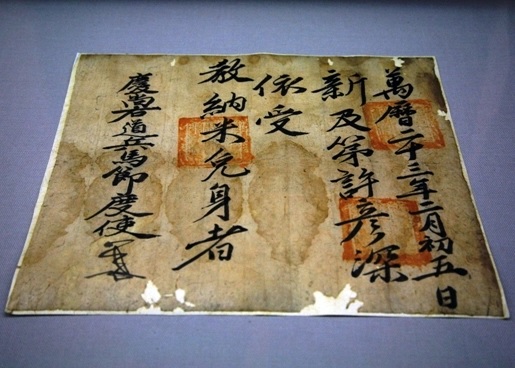 萬曆二十三年二月初五日
新及第許彦深
依受
教納米免身者
慶尚右道兵馬節度使